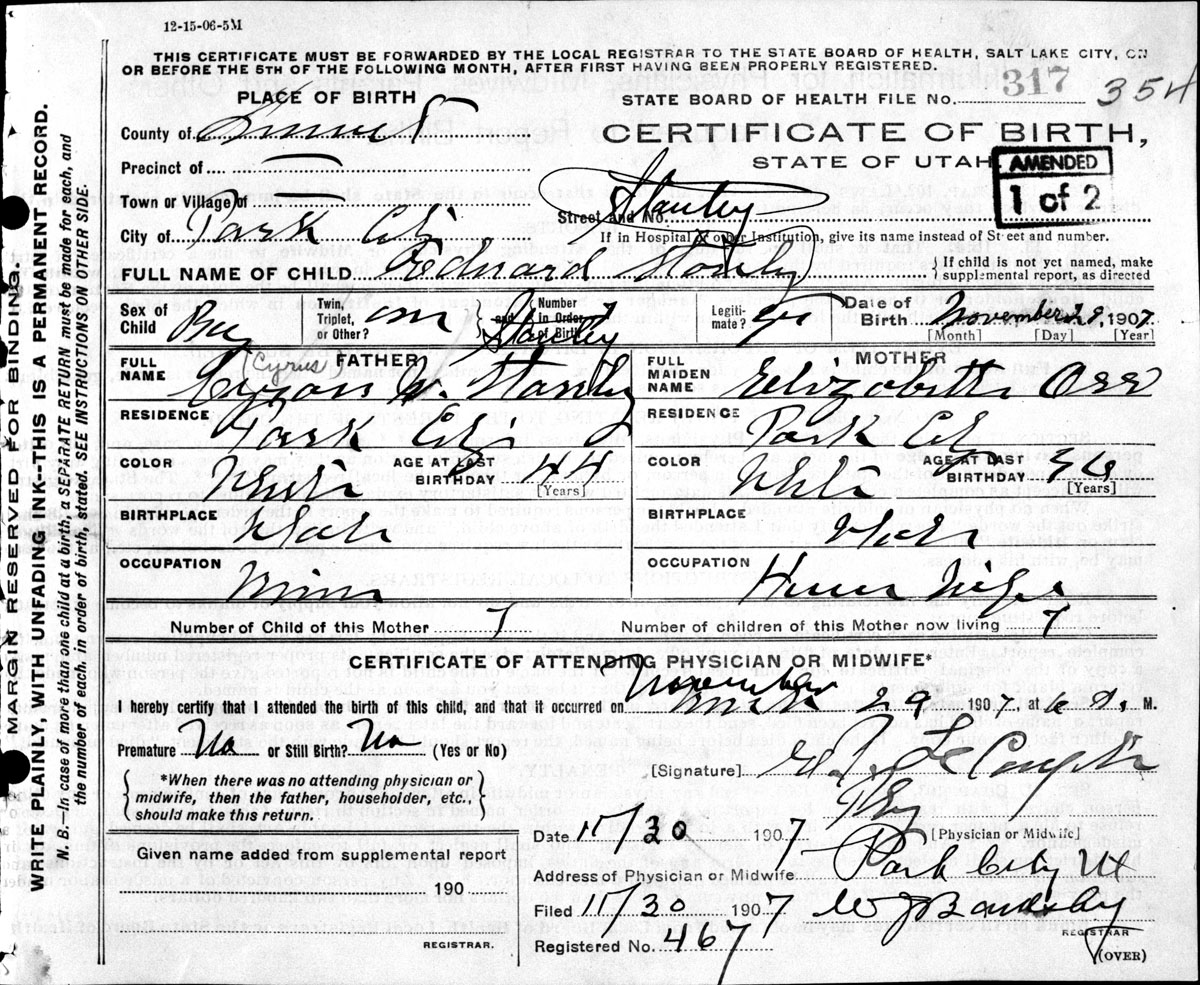 12-15-06-5M
THIS CERTIFICATE MUST BE FORWARDED BY THE LOCAL REGISTRAR TO THE STATE BOARD OF HEALTH, SALT LAKE CITY, ON
OR BEFORE THE 5TH OF THE FOLLOWING MONTH, AFTER FIRST HAVING BEEN PROPERLY REGISTERED.
PLACE OF BIRTH
STATE BOARD OF HEALTH FILE No. 317 354
County of Summit
CERTIFICATE OF BIRTH,
STATE OF UTAH
AMENDED
1 of 2
Precinct of
Town or Village of
Stanley
Street and No.
City of Park City
If in Hospital or other Institution, give its name instead of Street and number.
FULL NAME OF CHILD Edward Stanley
If child is not yet named, make
supplemental report, as directed
Sex of Child Boy
Twin, Triplet, or Other? one
and Number in Order of Birth 7
Stanley
Legitimate? yes
Date of Birth November 29, 1907
[Month] [Day] [Year]
FATHER
FULL NAME Cyrus Stanley
MOTHER
FULL MAIDEN NAME Elizabeth Orr
RESIDENCE Park City
RESIDENCE Park City
COLOR White
AGE AT LAST BIRTHDAY 44
[Years]
COLOR White
AGE AT LAST BIRTHDAY 36
[Years]
BIRTHPLACE Utah
BIRTHPLACE Utah
OCCUPATION Miner
OCCUPATION House Wife
Number of Child of this Mother 7
Number of children of this Mother now living 7
CERTIFICATE OF ATTENDING PHYSICIAN OR MIDWIFE*
November
I hereby certify that I attended the birth of this child, and that it occurred on 29 1907, at 6 M.
Premature No or Still Birth? No (Yes or No)
*When there was no attending physician or
midwife, then the father, householder, etc.,
should make this return.
[Signature] Le Compte
Phy
[Physician or Midwife]
Date 11/30 1907
Given name added from supplemental report
Address of Physician or Midwife Park City Ut
190
Filed 11/30 1907 W J Bardsley
REGISTRAR
REGISTRAR.
Registered No. 467
(OVER)
MARGIN RESERVED FOR BINDING.
WRITE PLAINLY, WITH UNFADING INK--THIS IS A PERMANENT RECORD.
N. B.--In case of more than one child at a birth, a SEPARATE RETURN must be made for each, and
the number of each, in order of birth, stated. SEE INSTRUCTIONS ON OTHER SIDE.